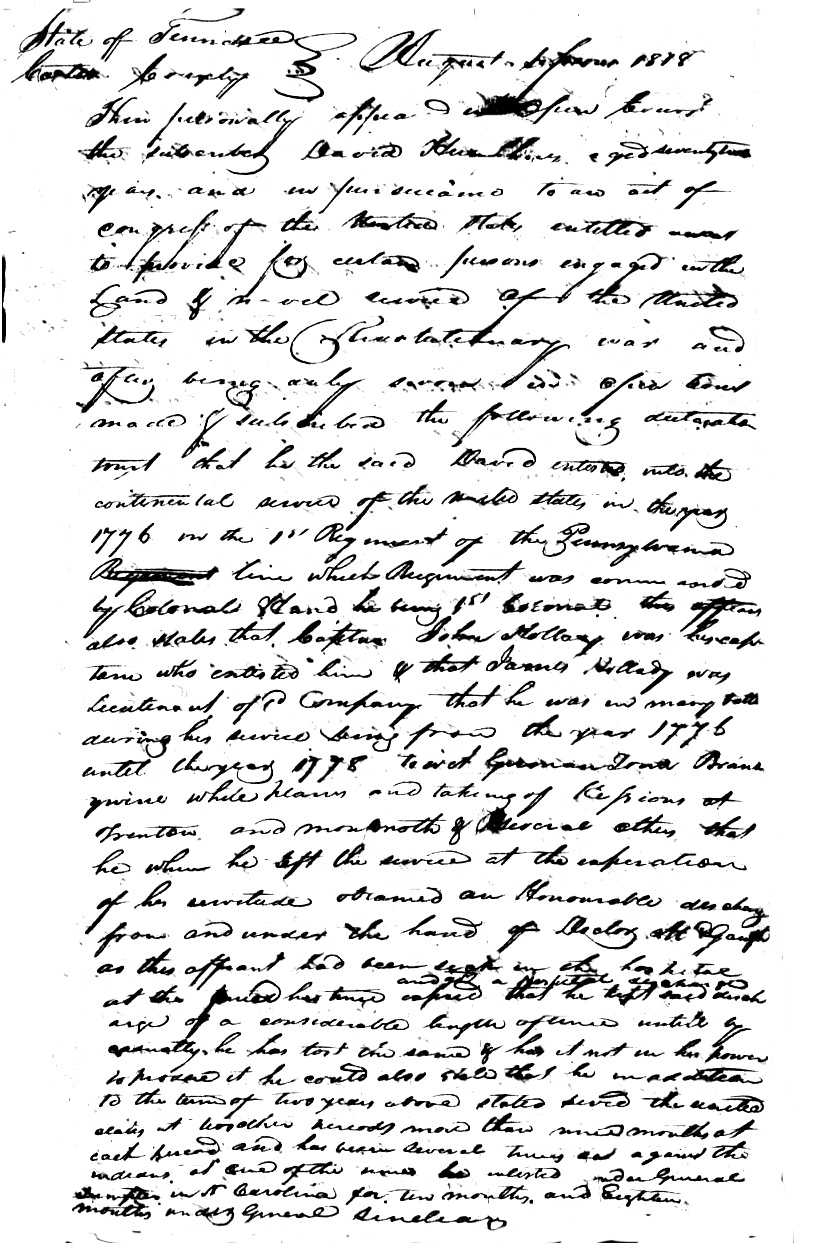 State of Tennessee
Carter County } August Sessions 1818
Then personally appeared in open Court
the subscriber David Humphries aged seventy two
years and in pursuance to an act of
congress of the United States entitled an act
to provide for certain persons engaged in the
Land & naval service of the United
States in the Revolutionary war and
after being duly sworn in open Court
made & subscribed the following declaration
to wit that he the said David entered into the
continental service of the united states in the year
1776 in the 1st Regiment of the Pennsylvania
line which Regiment was commanded
by Colonel Hand he being 1st Colonel this
also states that Captain John Hollady was his cap
tain who enlisted him & that James Hollady was
Lieutenant of sd Company that he was in many
during his service being from the year 1776
until the year 1778 to wit German Town Brand
ywine white Plains and taking of Hessions at
Trenton and monmoth & several others that
he when he left the service at the experation
of his servitude obtained an Honourable discharg
from and under the hand of Doctor
as this affiant had been sick in the hospital
and got a Hospital discharge
at the period his time expired that he kept said disch
arge of a considerable length of time until by
casualty he has lost the same & has it not in his power
to procure it he could also state that he in addition
to the term of two years above stated served the united
states at two other periods more than nine months at
each period and has been several times out against the
indians at one of the times he enlisted under General
Sumpter in N Carolina for ten months and Eighteen
months under General Sinclear